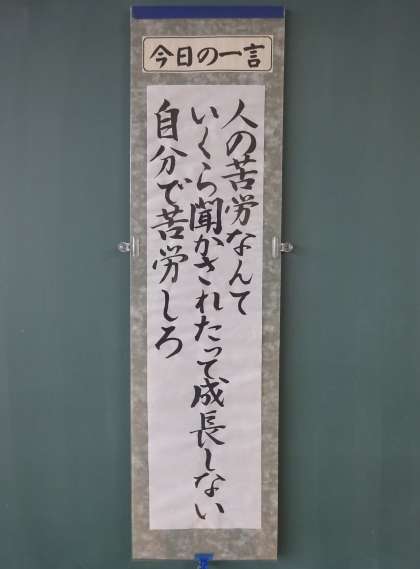 今日の一言
人の苦労なんて
いくら聞かされたって成長しない
自分で苦労しろ